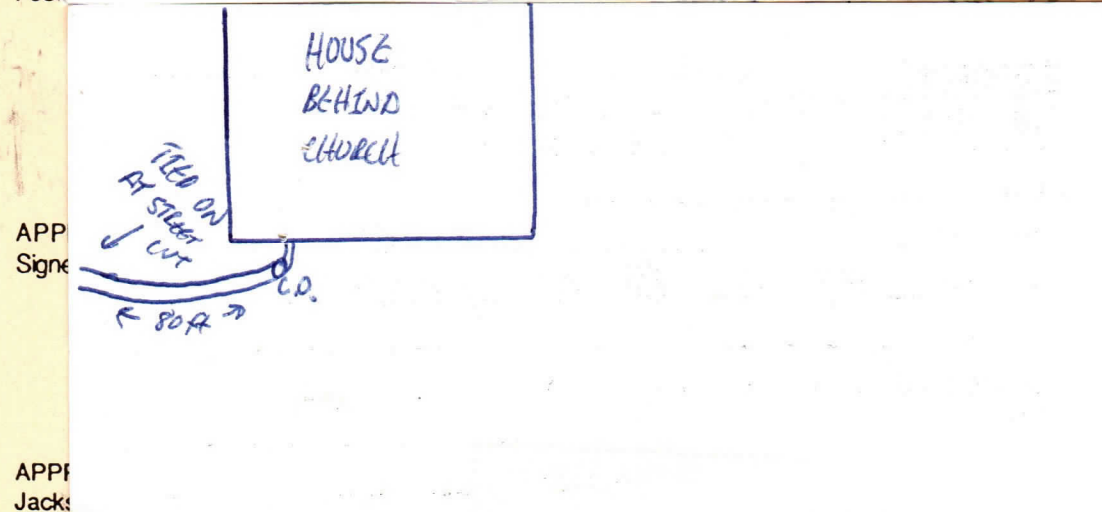 HOUSE
BEHIND
CHURCH
TIED ON
AT STREET
CUT
C.O.
← 80 ft →
APP
Signe
APPR
Jacks